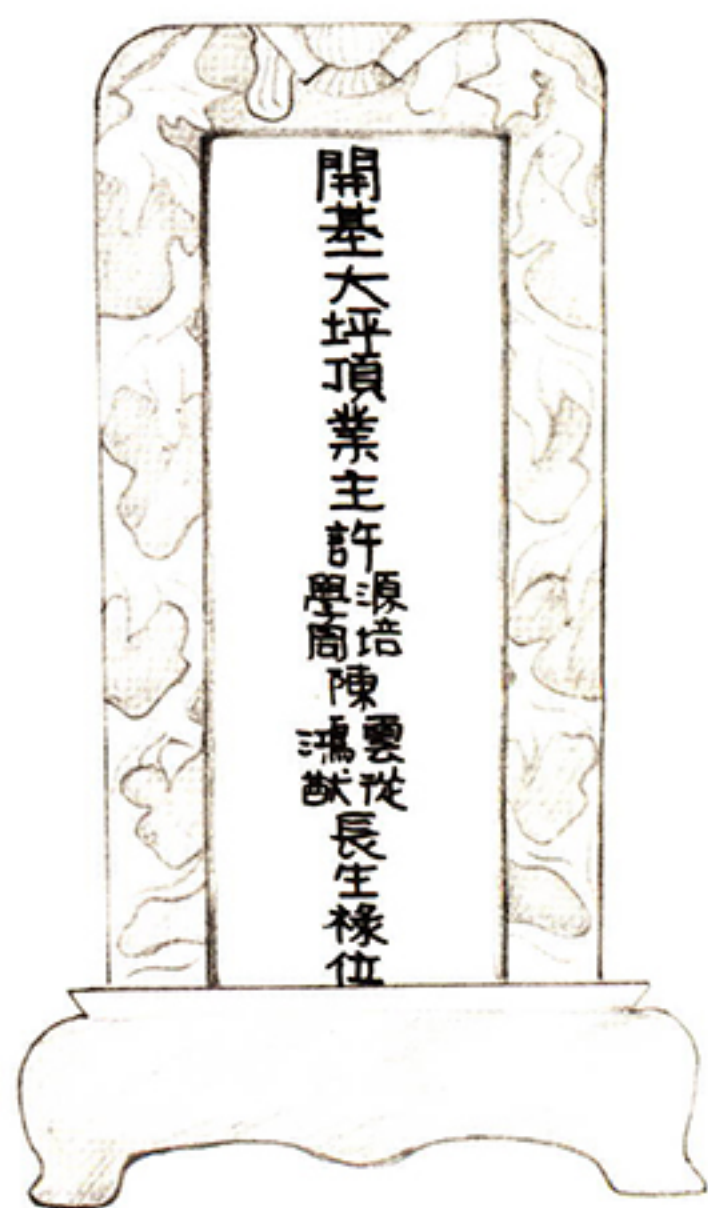 開基大坪頂業主許
源培
學周
陳
雲從
鴻猷
長生祿位